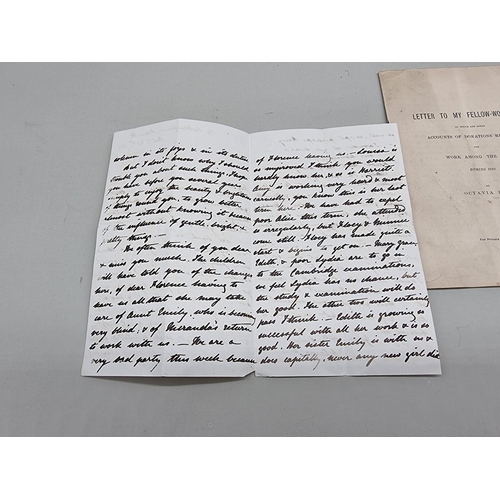 whom in its joys & in its duties
But I don't know why I should
trouble you about such things. I hope
you have before you several years
simply to enjoy the beauty & brightness
of things round you, to grow better
almost without knowing it because
of the influence of gentle, bright &
pretty things —
We often think of you dear
& miss you much. The children
will have told you of the changes
here, of dear Florence having to
leave us all that she may take
care of Aunt Emily, who is becoming
very blind, & of Miranda's return
to work with us. — We are a
very sad party this week because
of Florence leaving us — Louisa is
so improved I think you would
hardly know her, & so is Harriett
Amy is working very hard & most
earnestly, you know this is her last
term here. We have had to expel
poor Alice this term, she attended
so irregularly, but Flocy & Minnie
come still. Flocy has made quite a
start & begins to get on — Mary, Grace,
Edith, & poor Lydia are to go in
to the Cambridge examinations,
we feel Lydia has no chance, but
the study & examination will do
her good. The other two will certainly
pass I think — Edith is growing so
successful with all her work & is so
good. Her sister Emily is with us &
does capitally, never any new girl did
LETTER TO MY FELLOW-WO
TO WHICH ARE ADDED
ACCOUNTS OF DONATIONS RE
FOR
WORK AMONG THE
DURING
BY
OCTAVIA H